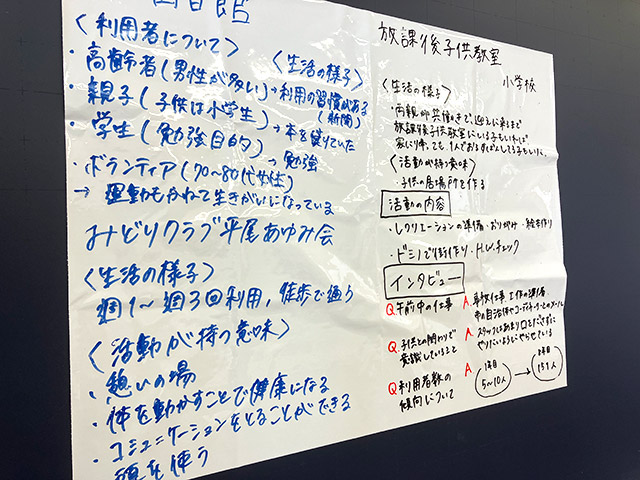 書館
〈利用者について〉
・高齢者(男性が多い)→利用の習慣がある
(新聞)
〈生活の様子〉
・親子(子供は小学生)→本を借りていた
・学生(勉強目的)→勉強
・ボランティア(70〜80代女性)
→運動もかねて生きがいになっている
みどりクラブ平尾あゆみ会
〈生活の様子〉
週1〜週3回利用,徒歩で通う
〈活動が持つ意味〉
・憩いの場
・体を動かすことで健康になる
・コミュニケーションをとることができる
・頭を使う
放課後子供教室
小学校
〈生活の様子〉
・両親が共働きで、迎えに来るまで
放課後子供教室にいる子もいれば
家に帰っても1人で
子もいた。
〈活動が持つ意味〉
・子供の居場所を作る
活動の内容
・レクリエーションの準備・おりがみ・絵を作り
・ドミノで街作り・H.W.チェック
インタビュー
Q 午前中の仕事
A 事務仕事、工作の準備、
市の自治体やコーディネーターとのメール
Q 子供との関わりで
意識していること
A スタッフはあまり口をださずに
やりたいようにやらせている
Q 利用者数の
傾向について
A 1年目
5〜10人
→
151人